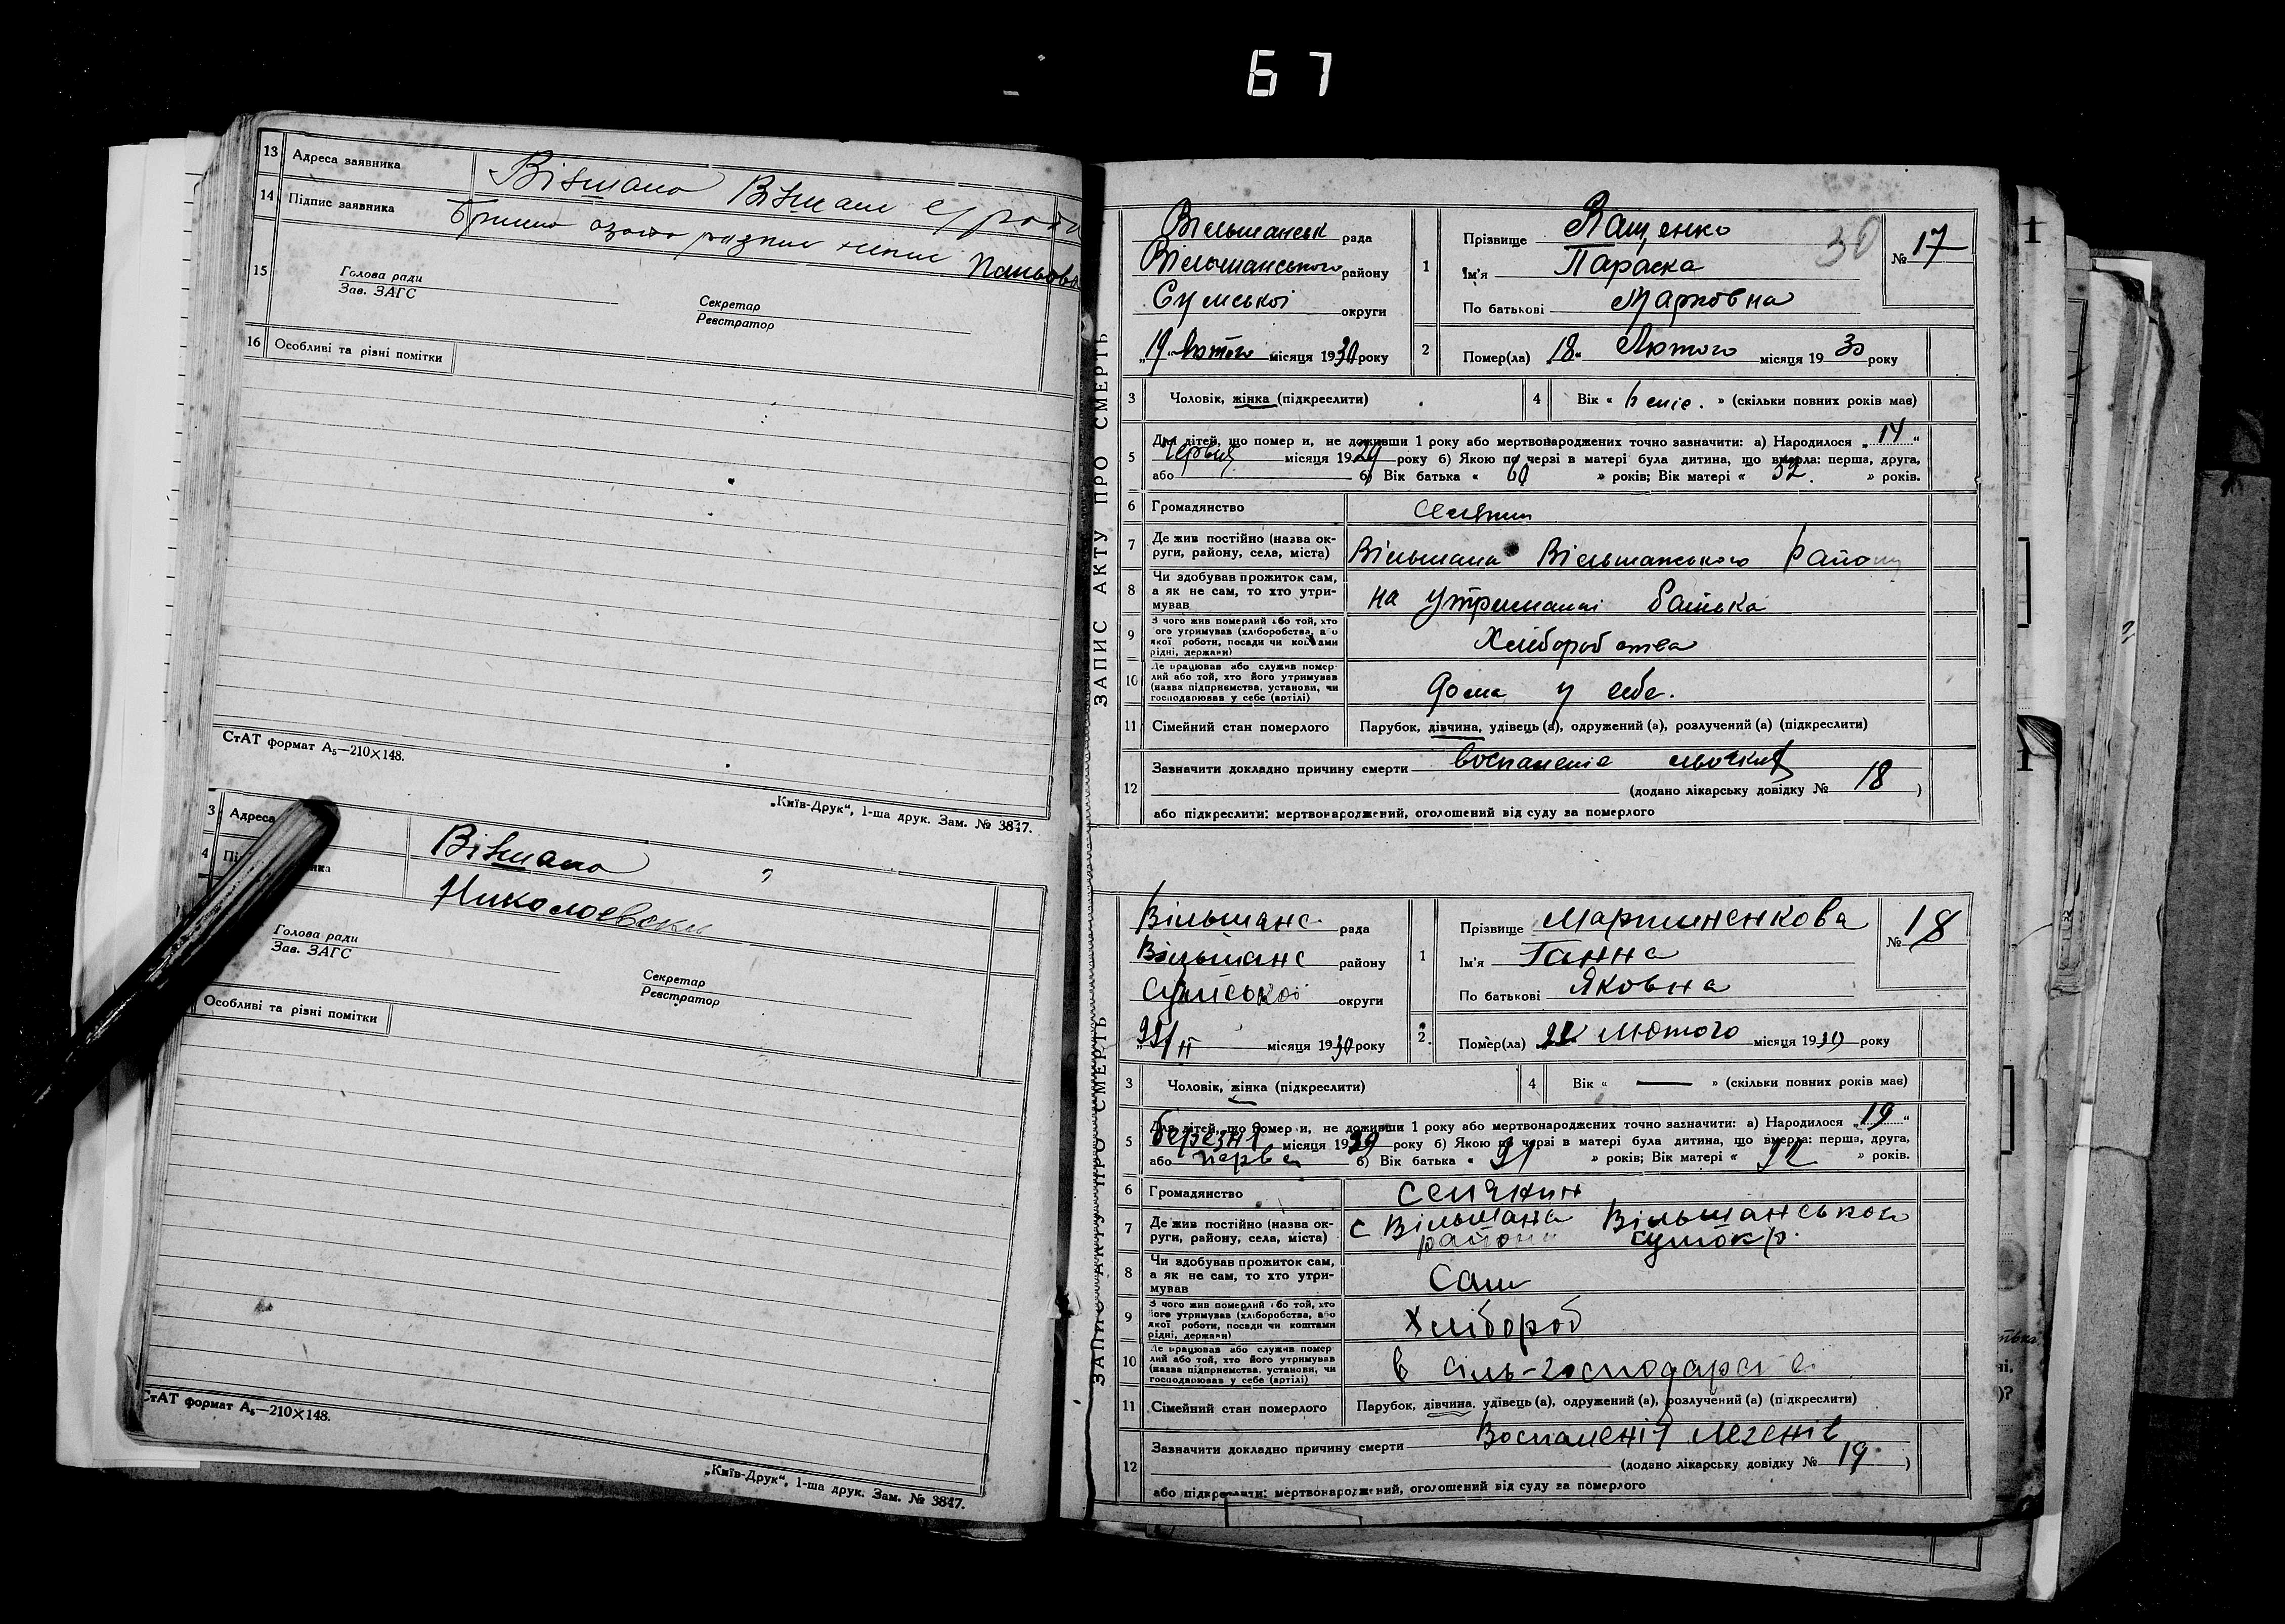 67
13 Адреса заявника Вільшана
14 Підпис заявника
15 Голова ради
Зав. ЗАГС
Секретар
Реєстратор
16 Особливі та різні помітки
СтАТ формат А₅—210×148.
„Київ-Друк“, 1-ша друк. Зам. № 3847.
3 Адреса Вільшана
4 Пі ника
Голова ради
Зав. ЗАГС
Секретар
Реєстратор
Особливі та різні помітки
СтАТ формат А₅—210×148.
„Київ-Друк“, 1-ша друк. Зам. № 3847.
ЗАПИС АКТУ ПРО СМЕРТЬ
Вільшанськ рада
Вільшанського району
Сумської округи
„19“ лютого місяця 1930 року
1 Прізвище Ващенко
30
№ 17
Ім'я Параска
По батькові Марковна
2 Помер(ла) 18 Лютого місяця 1930 року
3 Чоловік, жінка (підкреслити)
4 Вік « » (скільки повних років має)
5 Для дітей, що помер и, не доживши 1 року або мертвонароджених точно зазначити: а) Народилося „14“
Червня місяця 1929 року б) Якою по черзі в матері була дитина, що вмерла: перша, друга,
або б) Вік батька « 60 » років; Вік матері « 52 » років.
6 Громадянство
7 Де жив постійно (назва ок-
руги, району, села, міста) Вільшана Вільшанського Району
8 Чи здобував прожиток сам,
а як не сам, то хто утри-
мував на утриманні батька
9 З чого жив померлий або той, хто
його утримував (хліборобства, або
якої роботи, посади чи коштами
рідні, держави) Хліборобства
10 Де працював або служив помер-
лий або той, хто його утримував
(назва підприємства, установи, чи
господарював у себе (артілі) дома у себе.
11 Сімейний стан померлого Парубок, дівчина, удівець (а), одружений (а), розлучений (а) (підкреслити)
12 Зазначити докладно причину смерти воспаленіе
(додано лікарську довідку № 18 )
або підкреслити: мертвонароджений, оголошений від суду за померлого
ЗАПИС АКТУ ПРО СМЕРТЬ
Вільшанс рада
Вільшанс району
Сумської округи
місяця 1930 року
1 Прізвище Мартиненкова
№ 18
Ім'я Ганна
По батькові Яковна
2. Помер(ла) лютого місяця 1930 року
3 Чоловік, жінка (підкреслити)
4 Вік « — » (скільки повних років має)
5 Для дітей, що помер и, не доживши 1 року або мертвонароджених точно зазначити: а) Народилося „19“
березня місяця 1929 року б) Якою по черзі в матері була дитина, що вмерла: перша, друга,
або перва б) Вік батька « » років; Вік матері « » років.
6 Громадянство селянин
7 Де жив постійно (назва ок-
руги, району, села, міста) с Вільшана Вільшанського
району
8 Чи здобував прожиток сам,
а як не сам, то хто утри-
мував Сам
9 З чого жив померлий або той, хто
його утримував (хліборобства, або
якої роботи, посади чи коштами
рідні, держави) Хлібороб
10 Де працював або служив помер
лий або той, хто його утримував
(назва підприємства, установи, чи
господарював у себе (артілі) в сіль-господарстві
11 Сімейний стан померлого Парубок, дівчина, удівець (а), одружений (а), розлучений (а) (підкреслити)
12 Зазначити докладно причину смерти Воспаленія легенів
(додано лікарську довідку № 19 )
або підкреслити: мертвонароджений, оголошений від суду за померлого